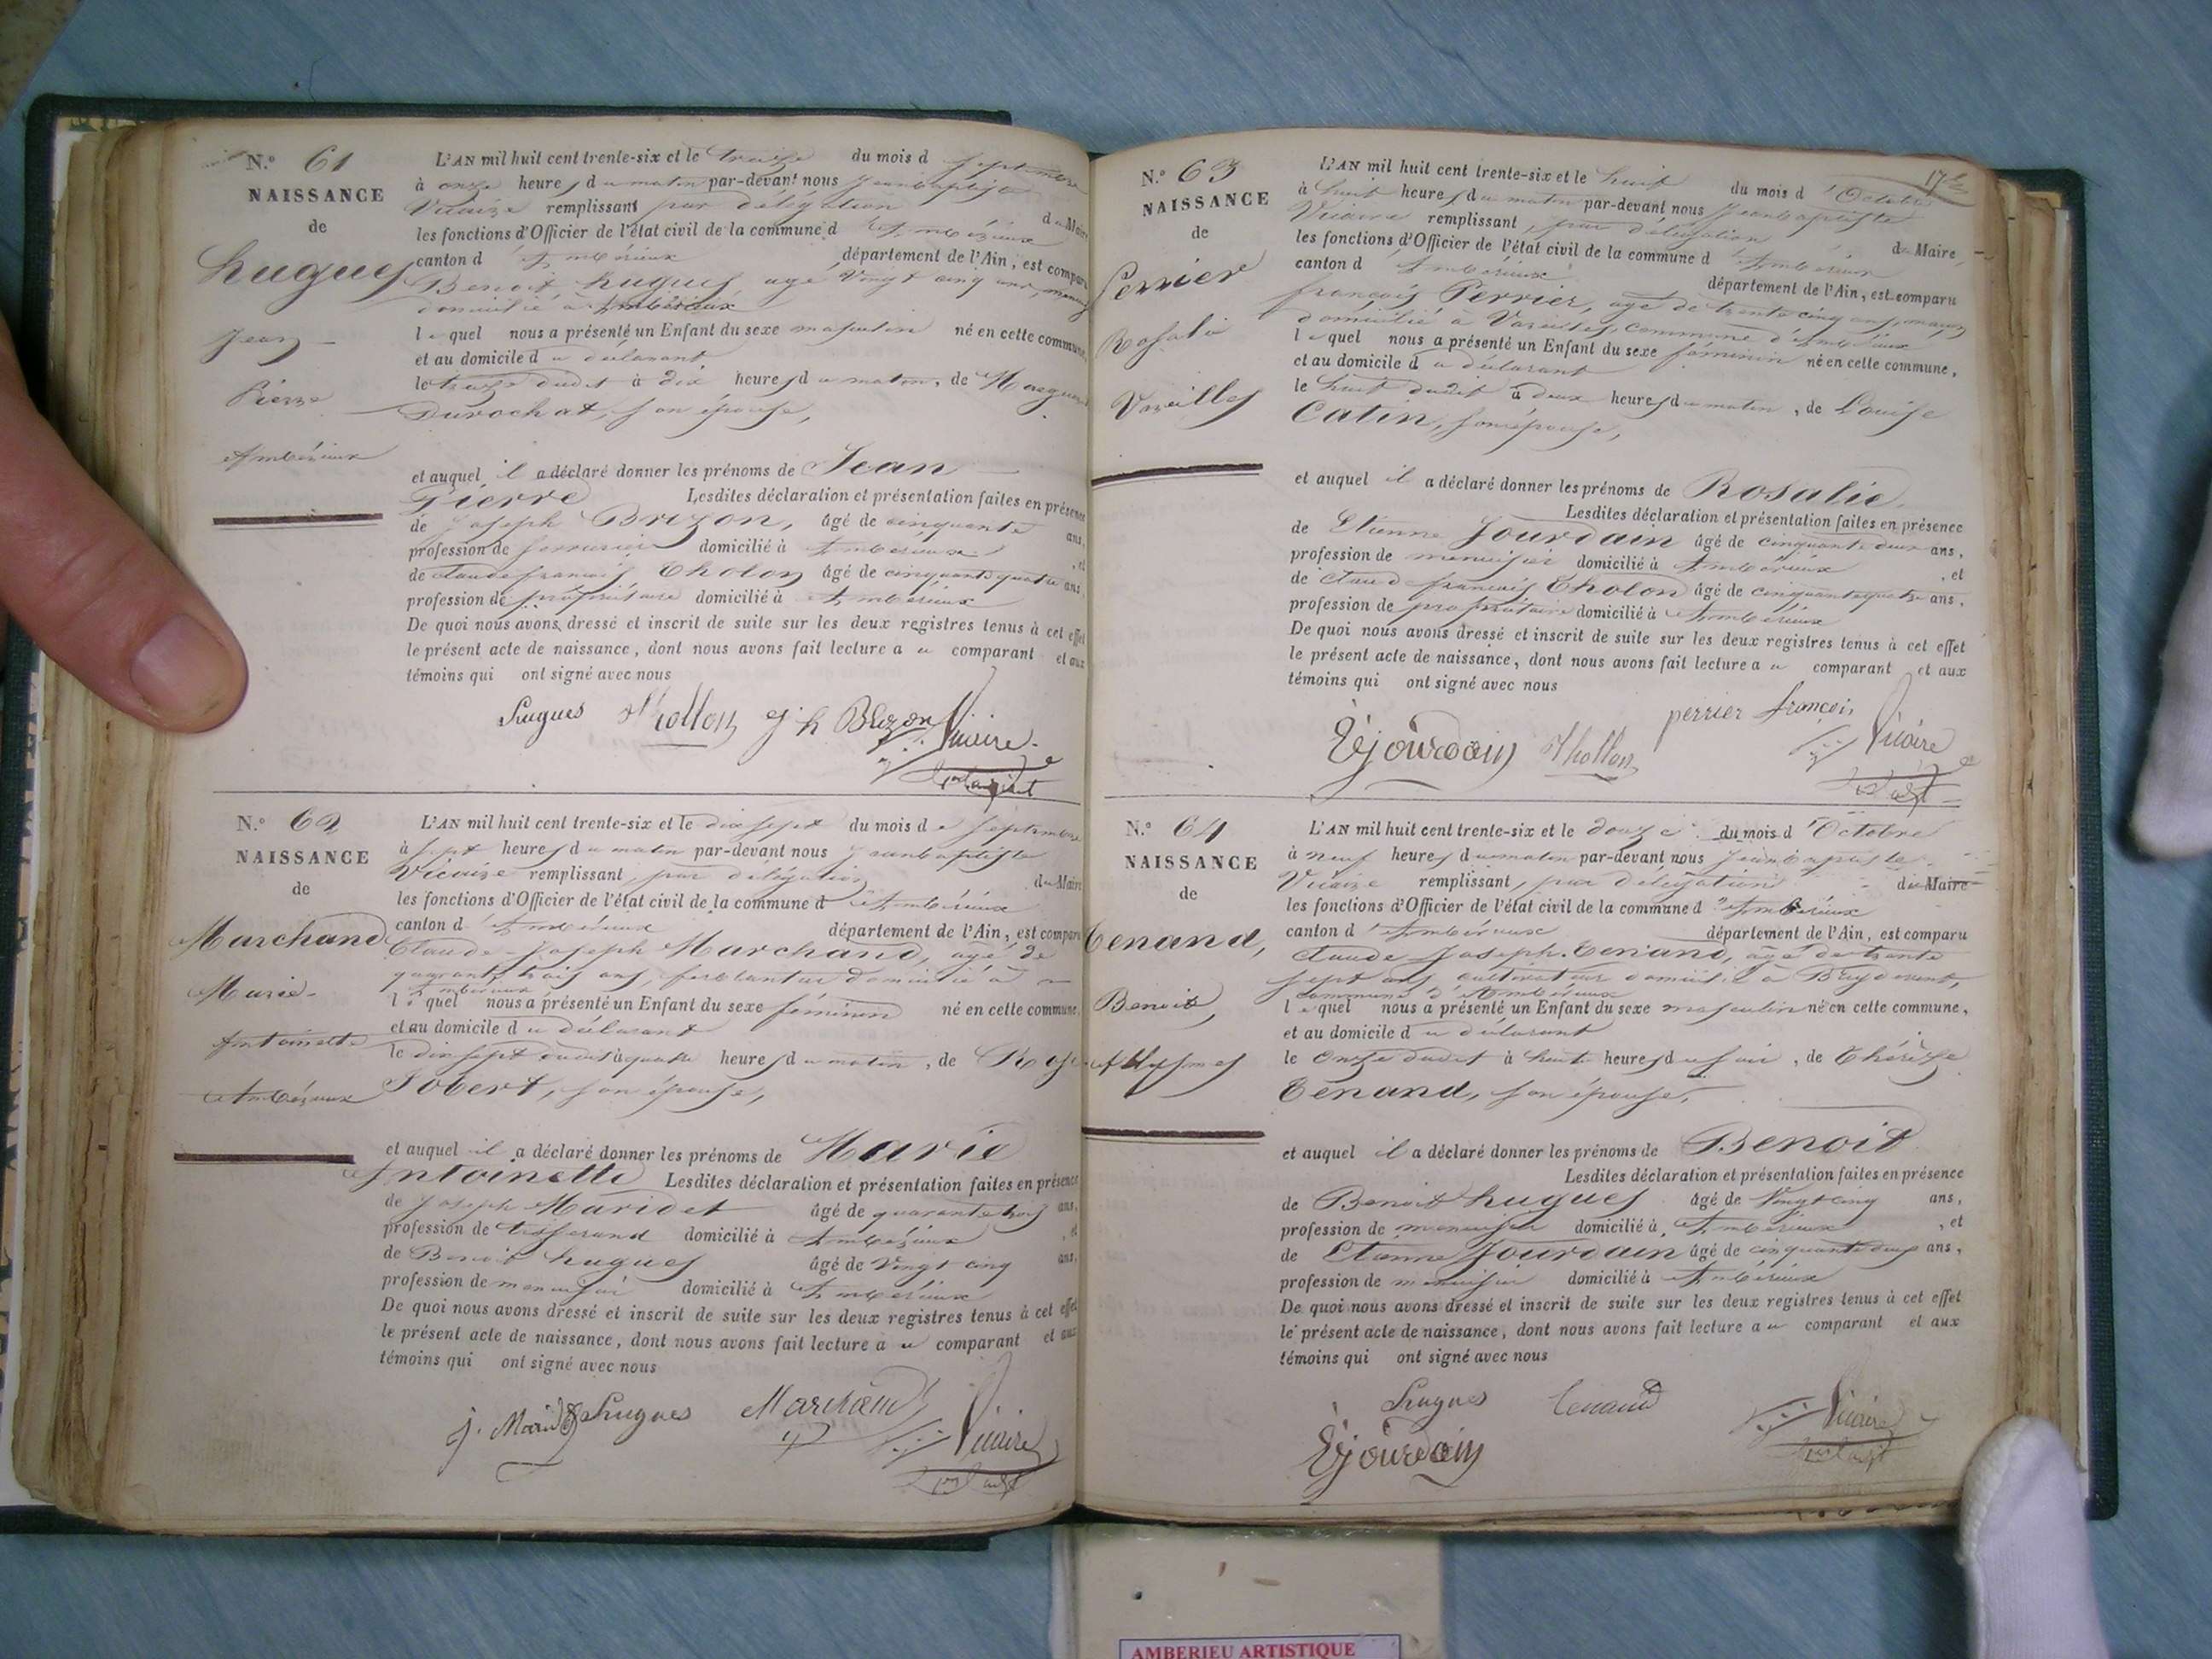 N.° 61
NAISSANCE
de
hugues
Jean
Pierre
Ambérieux
L'AN mil huit cent trente-six et le treize du mois d septembre
à onze heures du matin par-devant nous Jean baptiste
Vicaire remplissant par délégation du Maire
les fonctions d'Officier de l'état civil de la commune d'Ambérieux
canton d'Ambérieux département de l'Ain, est comparu
Benoit hugues, agé Vingt cinq ans,
domicilié à Ambérieux
lequel nous a présenté un Enfant du sexe masculin né en cette commune,
et au domicile du déclarant
le treize dudit à dix heures du matin, de
Durochat, son épouse,
et auquel il a déclaré donner les prénoms de Jean
Pierre Lesdites déclaration et présentation faites en présence
de Joseph Brizon, âgé de cinquante ans,
profession de serrurier domicilié à Ambérieux, et
de Claude françois Tholon âgé de cinquante quatre ans,
profession de propriétaire domicilié à Ambérieux
De quoi nous avons dressé et inscrit de suite sur les deux registres tenus à cet effet
le présent acte de naissance, dont nous avons fait lecture au comparant et aux
témoins qui ont signé avec nous
Hugues Thollon j h Brizon Vicaire
N.° 62
NAISSANCE
de
Marchand
Marie
Antoinette
Ambérieux
L'AN mil huit cent trente-six et le dix sept du mois de septembre
à sept heures du matin par-devant nous Jean baptiste
Vicaire remplissant, par délégation du Maire
les fonctions d'Officier de l'état civil de la commune d'Ambérieux
canton d'Ambérieux département de l'Ain, est comparu
Claude Joseph Marchand, agé de
quarante trois ans, ferblantier domicilié à
Ambérieux
lequel nous a présenté un Enfant du sexe féminin né en cette commune,
et au domicile du déclarant
le dix sept dudit à quatre heures du matin, de Rose
Jobert, son épouse,
et auquel il a déclaré donner les prénoms de Marie
Antoinette Lesdites déclaration et présentation faites en présence
de Joseph Maridet âgé de quarante trois ans,
profession de tisserand domicilié à Ambérieux, et
de Benoit hugues âgé de Vingt cinq ans,
profession de menuisier domicilié à Ambérieux
De quoi nous avons dressé et inscrit de suite sur les deux registres tenus à cet effet
le présent acte de naissance, dont nous avons fait lecture au comparant et aux
témoins qui ont signé avec nous
j. Maridet Hugues Marchand Vicaire
17
N.° 63
NAISSANCE
de
Perrier
Rosalie
Vareilles
L'AN mil huit cent trente-six et le huit du mois d'Octobre
à huit heures du matin par-devant nous Jean baptiste
Vicaire remplissant, par délégation du Maire,
les fonctions d'Officier de l'état civil de la commune d'Ambérieux
canton d'Ambérieux département de l'Ain, est comparu
françois Perrier, agé de trente cinq ans, maçon
domicilié à Vareilles, commune d'Ambérieux
lequel nous a présenté un Enfant du sexe féminin né en cette commune,
et au domicile du déclarant
le huit dudit à deux heures du matin, de Louise
Catin, son épouse,
et auquel il a déclaré donner les prénoms de Rosalie
Lesdites déclaration et présentation faites en présence
de Etienne Jourdain âgé de cinquante deux ans,
profession de menuisier domicilié à Ambérieux, et
de Claude françois Tholon âgé de cinquante quatre ans,
profession de propriétaire domicilié à Ambérieux
De quoi nous avons dressé et inscrit de suite sur les deux registres tenus à cet effet
le présent acte de naissance, dont nous avons fait lecture au comparant et aux
témoins qui ont signé avec nous
perrier françois
Ejourdain Thollon Vicaire
N.° 64
NAISSANCE
de
Tenand,
Benoit,
Allymes
L'AN mil huit cent trente-six et le douze du mois d'Octobre
à neuf heures du matin par-devant nous Jean baptiste
Vicaire remplissant, par délégation du Maire
les fonctions d'Officier de l'état civil de la commune d'Ambérieux
canton d'Ambérieux département de l'Ain, est comparu
Claude Joseph Tenand, âgé de trente
sept ans, cultivateur domicilié à
commune d'Ambérieux
lequel nous a présenté un Enfant du sexe masculin né en cette commune,
et au domicile du déclarant
le onze dudit à huit heures du soir, de Thérèse
Tenand, son épouse,
et auquel il a déclaré donner les prénoms de Benoit
Lesdites déclaration et présentation faites en présence
de Benoit hugues âgé de Vingt cinq ans,
profession de menuisier domicilié à Ambérieux, et
de Etienne Jourdain âgé de cinquante deux ans,
profession de menuisier domicilié à Ambérieux
De quoi nous avons dressé et inscrit de suite sur les deux registres tenus à cet effet
le présent acte de naissance, dont nous avons fait lecture au comparant et aux
témoins qui ont signé avec nous
Hugues Tenand Vicaire
Ejourdain
AMBERIEU ARTISTIQUE